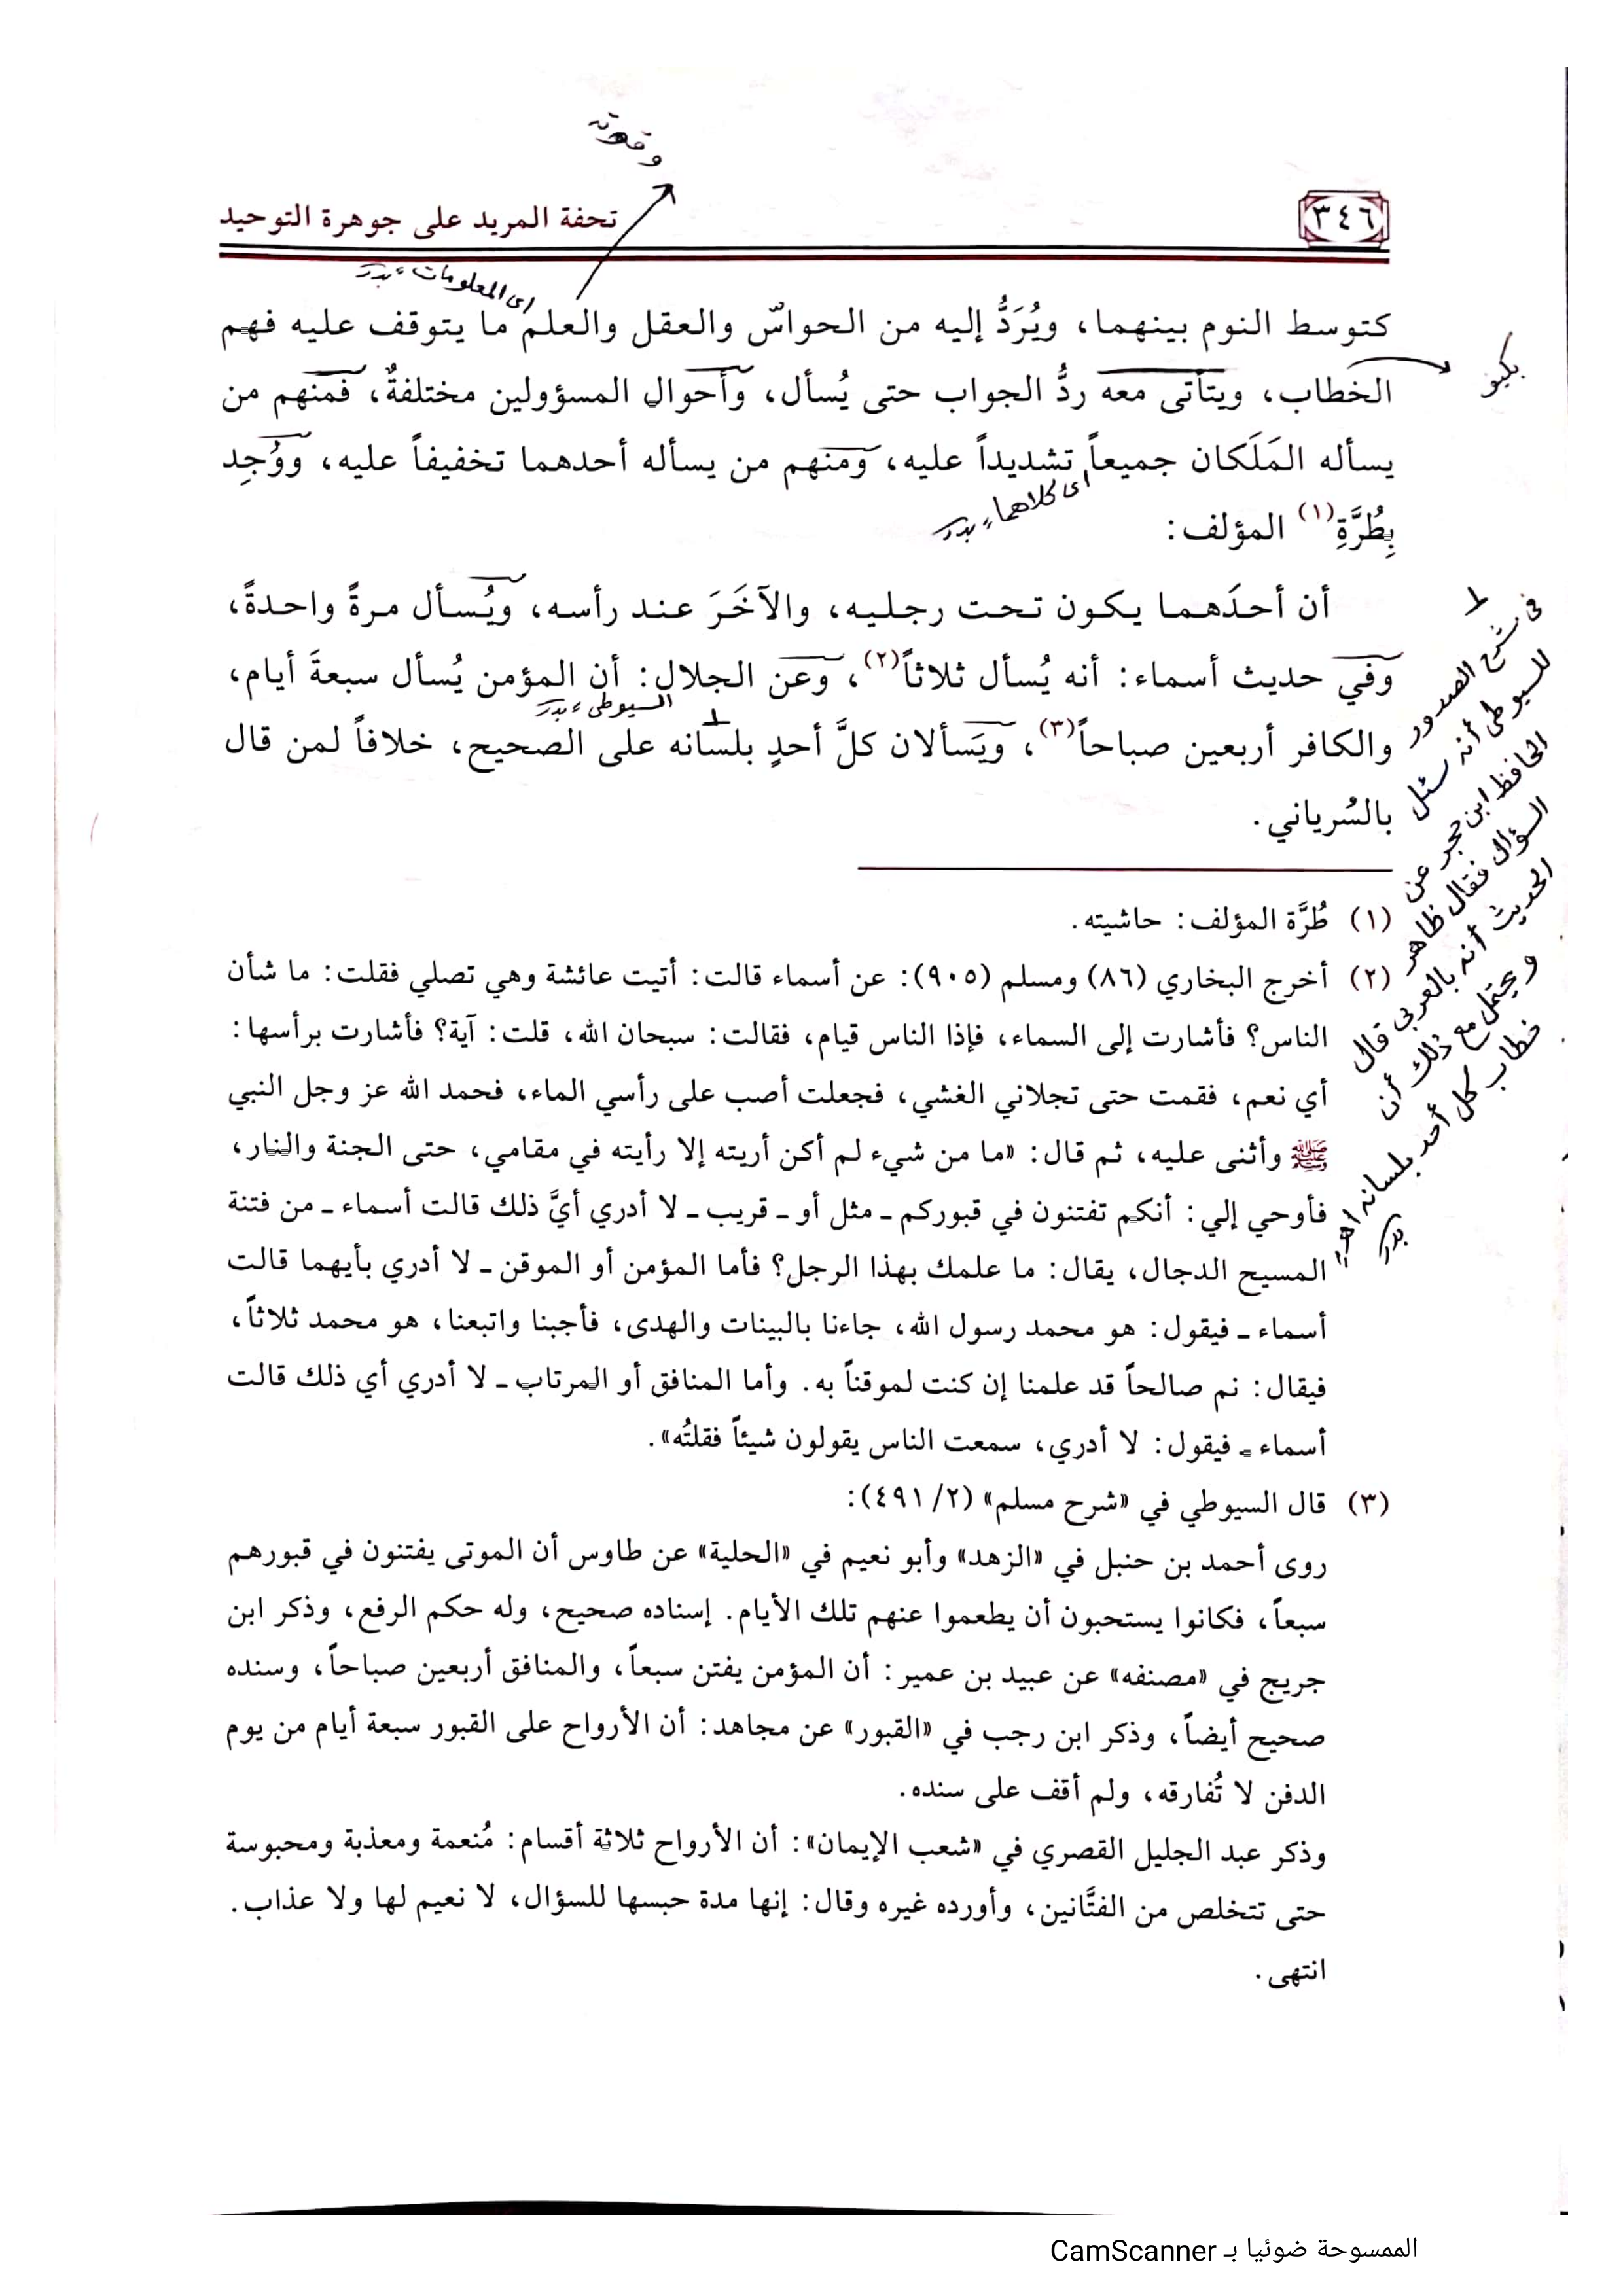 ٣٤٦
تحفة المريد على جوهرة التوحيد
اى المعلومات ء بدر
كتوسط النوم بينهما، ويُرَدُّ إليه من الحواسّ والعقل والعلم ما يتوقف عليه فهم
الخطاب، ويتأتى معه ردُّ الجواب حتى يُسأل، وأحوال المسؤولين مختلفةٌ، فمنهم من
يسأله المَلَكان جميعاً تشديداً عليه، ومنهم من يسأله أحدهما تخفيفاً عليه، ووُجِد
اى كلاهما ء بدر
بِطُرَّةِ(١) المؤلف:
أن أحدَهما يكون تحت رجليه، والآخَرَ عند رأسه، ويُسأل مرةً واحدةً،
وفي حديث أسماء: أنه يُسأل ثلاثاً(٢)، وعن الجلال: أن المؤمن يُسأل سبعةَ أيام،
السيوطى ء بدر
والكافر أربعين صباحاً(٣)، ويَسألان كلَّ أحدٍ بلسانه على الصحيح، خلافاً لمن قال
بالسُرياني.
فى شرح الصدور
للسيوطى أنه سئل
الحافظ ابن حجر عن
السؤال فقال ظاهر
الحديث أنه بالعربى قال
ويحتمل مع ذلك أن
خطاب كل أحد بلسانه اهـ
بدر
(١) طُرَّة المؤلف: حاشيته.
(٢) أخرج البخاري (٨٦) ومسلم (٩٠٥): عن أسماء قالت: أتيت عائشة وهي تصلي فقلت: ما شأن
الناس؟ فأشارت إلى السماء، فإذا الناس قيام، فقالت: سبحان الله، قلت: آية؟ فأشارت برأسها:
أي نعم، فقمت حتى تجلاني الغشي، فجعلت أصب على رأسي الماء، فحمد الله عز وجل النبي
ﷺ وأثنى عليه، ثم قال: «ما من شيء لم أكن أريته إلا رأيته في مقامي، حتى الجنة والنار،
فأوحي إلي: أنكم تفتنون في قبوركم ـ مثل أو ـ قريب ـ لا أدري أيَّ ذلك قالت أسماء ـ من فتنة
المسيح الدجال، يقال: ما علمك بهذا الرجل؟ فأما المؤمن أو الموقن ـ لا أدري بأيهما قالت
أسماء ـ فيقول: هو محمد رسول الله، جاءنا بالبينات والهدى، فأجبنا واتبعنا، هو محمد ثلاثاً،
فيقال: نم صالحاً قد علمنا إن كنت لموقناً به. وأما المنافق أو المرتاب ـ لا أدري أي ذلك قالت
أسماء ـ فيقول: لا أدري، سمعت الناس يقولون شيئاً فقلتُه».
(٣) قال السيوطي في «شرح مسلم» (٢/ ٤٩١):
روى أحمد بن حنبل في «الزهد» وأبو نعيم في «الحلية» عن طاوس أن الموتى يفتنون في قبورهم
سبعاً، فكانوا يستحبون أن يطعموا عنهم تلك الأيام. إسناده صحيح، وله حكم الرفع، وذكر ابن
جريج في «مصنفه» عن عبيد بن عمير: أن المؤمن يفتن سبعاً، والمنافق أربعين صباحاً، وسنده
صحيح أيضاً، وذكر ابن رجب في «القبور» عن مجاهد: أن الأرواح على القبور سبعة أيام من يوم
الدفن لا تُفارقه، ولم أقف على سنده.
وذكر عبد الجليل القصري في «شعب الإيمان»: أن الأرواح ثلاثة أقسام: مُنعمة ومعذبة ومحبوسة
حتى تتخلص من الفتَّانين، وأورده غيره وقال: إنها مدة حبسها للسؤال، لا نعيم لها ولا عذاب.
انتهى.
الممسوحة ضوئيا بـ CamScanner